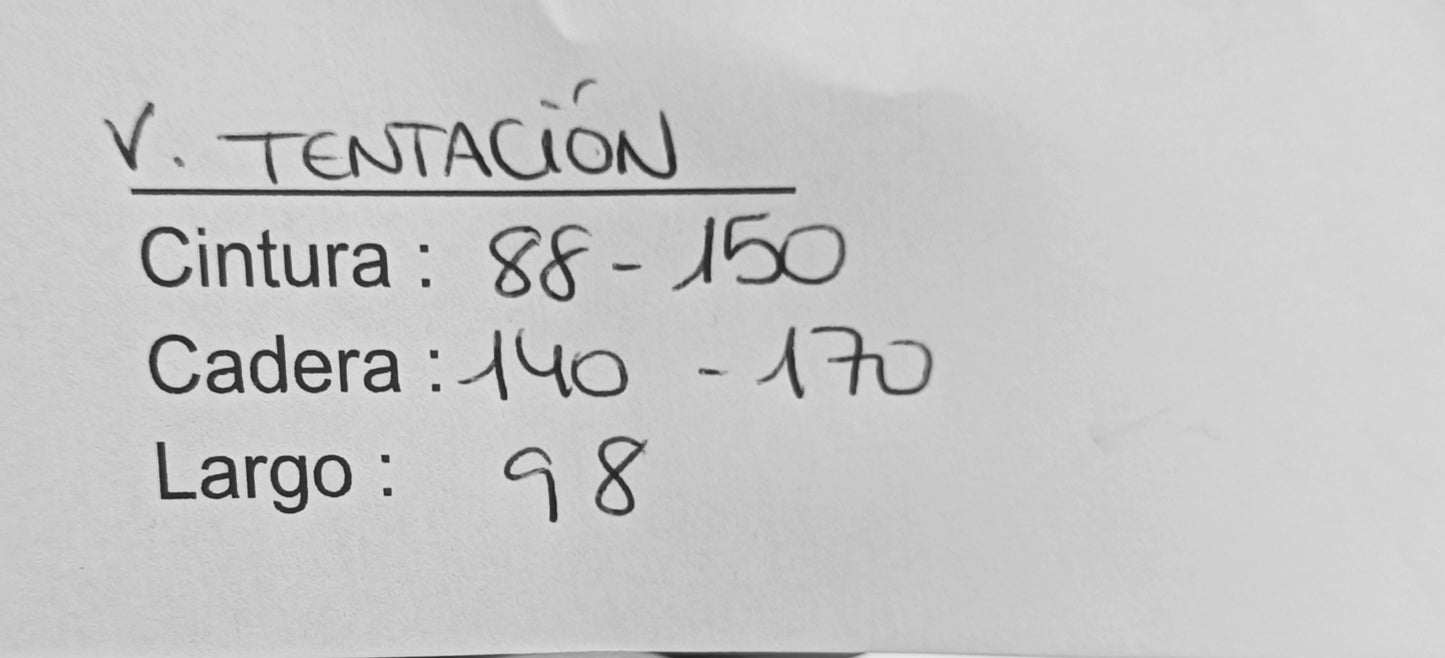 V. TENTACIÓN
Cintura : 88 - 150
Cadera : 140 - 170
Largo : 98